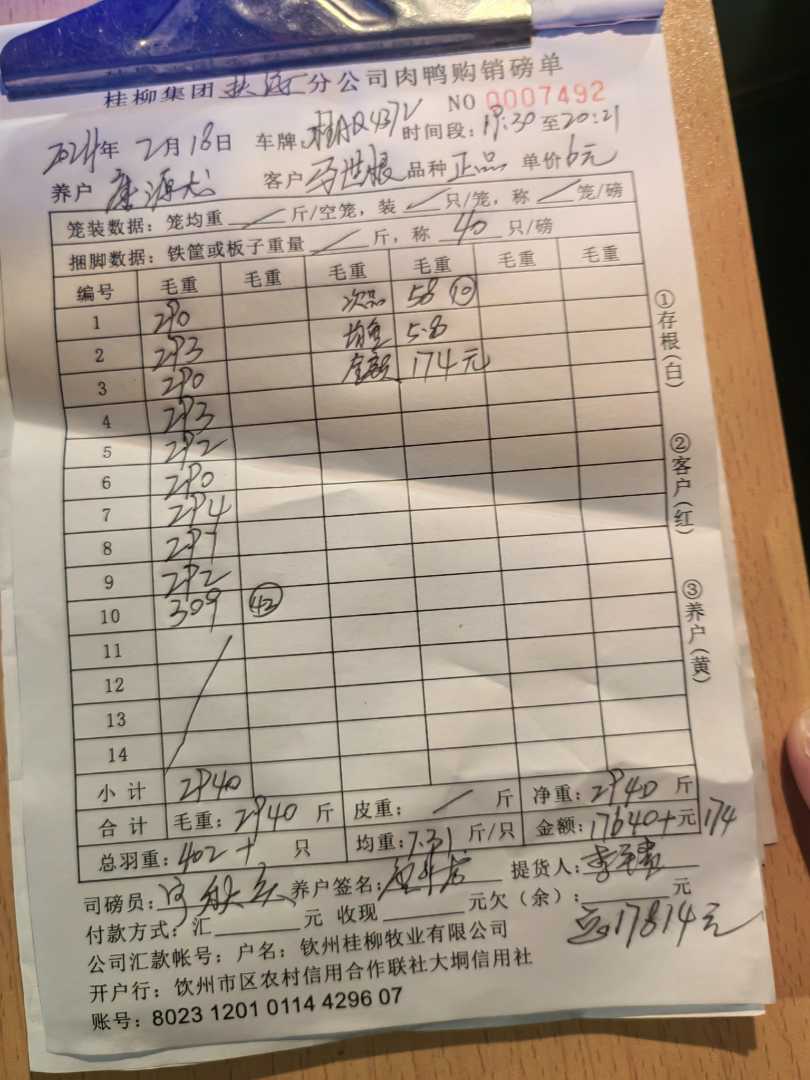 桂柳集团 分公司肉鸭购销磅单
NO 0007492
2024年 2月18日 车牌:桂AQ4372 时间段:19:30至20:21
养户 唐源龙 客户 品种 正品 单价 6元
笼装数据:笼均重 / 斤/空笼,装 / 只/笼,称 / 笼/磅
捆脚数据:铁筐或板子重量 / 斤,称 40 只/磅
编号 毛重 毛重 毛重 毛重 毛重 毛重
1 290 次品 58 ⑩
2 293 均重 5.8
3 290 金额 174元
4 293
5 292
6 290
7 294
8 297
9 292
10 309 ㊷
11
12
13
14
小计 2940
合计 毛重:2940 斤 皮重: / 斤 净重:2940 斤
总羽重:402+ 只 均重:7.31 斤/只 金额:17640+元 174
司磅员: 养户签名: 提货人:
付款方式:汇 元 收现 元欠(余): 元
17814元
公司汇款帐号:户名:钦州桂柳牧业有限公司
开户行:钦州市区农村信用合作联社大垌信用社
账号:8023 1201 0114 4296 07
①存根(白)
②客户(红)
③养户(黄)